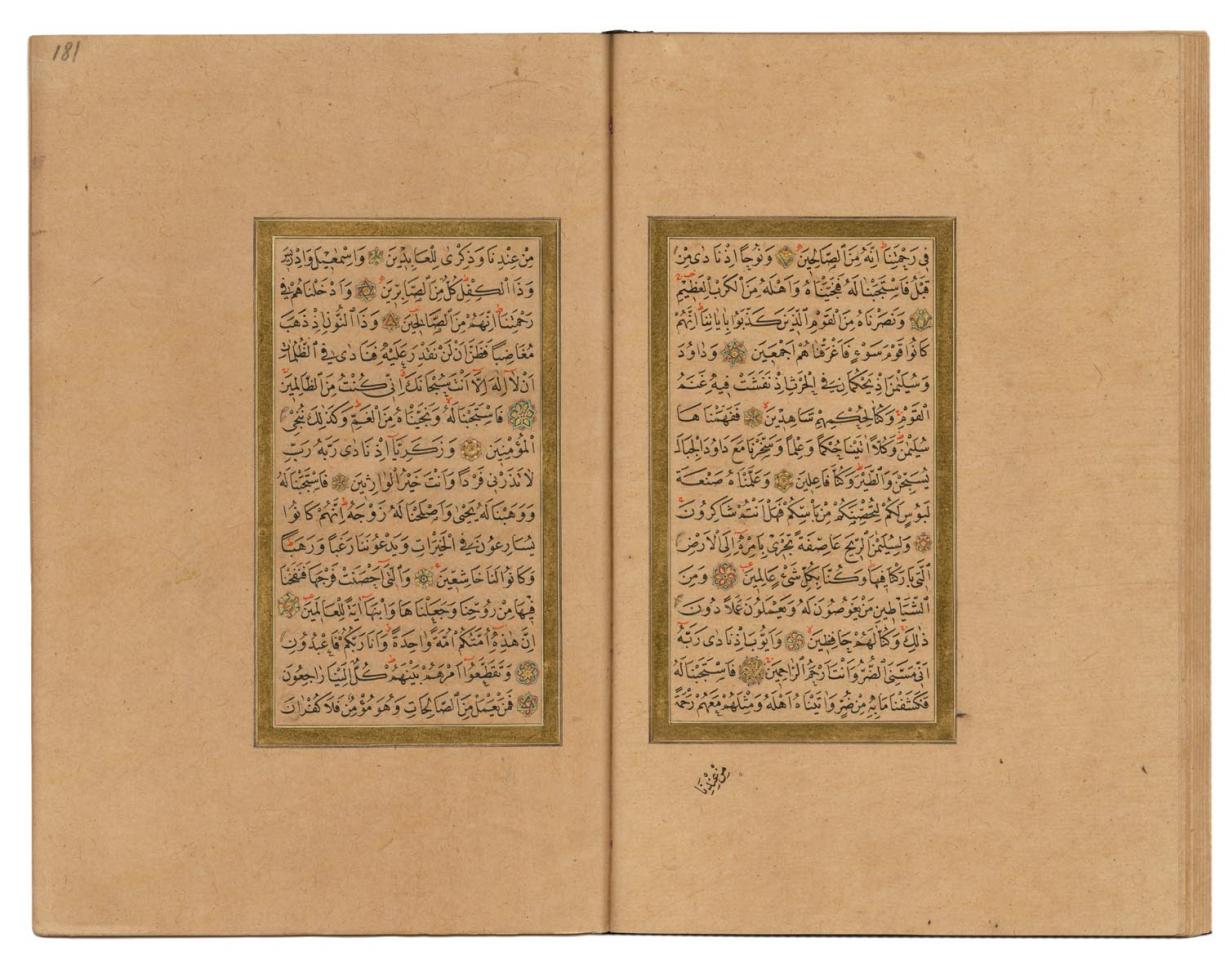 فِى رَحْمَتِنَا اِنَّهُ مِنَ الصَّالِحِينَ وَنُوحًا اِذْ نَادٰى مِنْ
قَبْلُ فَاسْتَجَبْنَا لَهُ فَنَجَّيْنَاهُ وَاَهْلَهُ مِنَ الْكَرْبِ الْعَظِيمِ
وَنَصَرْنَاهُ مِنَ الْقَوْمِ الَّذِينَ كَذَّبُوا بِاٰيَاتِنَا اِنَّهُمْ
كَانُوا قَوْمَ سَوْءٍ فَاَغْرَقْنَاهُمْ اَجْمَعِينَ وَدَاوُدَ
وَسُلَيْمٰنَ اِذْ يَحْكُمَانِ فِى الْحَرْثِ اِذْ نَفَشَتْ فِيهِ غَنَمُ
الْقَوْمِ وَكُنَّا لِحُكْمِهِمْ شَاهِدِينَ فَفَهَّمْنَاهَا
سُلَيْمٰنَ وَكُلًّا اٰتَيْنَا حُكْمًا وَعِلْمًا وَسَخَّرْنَا مَعَ دَاوُدَ الْجِبَالَ
يُسَبِّحْنَ وَالطَّيْرَ وَكُنَّا فَاعِلِينَ وَعَلَّمْنَاهُ صَنْعَةَ
لَبُوسٍ لَكُمْ لِتُحْصِنَكُمْ مِنْ بَاْسِكُمْ فَهَلْ اَنْتُمْ شَاكِرُونَ
وَلِسُلَيْمٰنَ الرِّيحَ عَاصِفَةً تَجْرِى بِاَمْرِهِ اِلَى الْاَرْضِ
الَّتِى بَارَكْنَا فِيهَا وَكُنَّا بِكُلِّ شَىْءٍ عَالِمِينَ وَمِنَ
الشَّيَاطِينِ مَنْ يَغُوصُونَ لَهُ وَيَعْمَلُونَ عَمَلًا دُونَ
ذٰلِكَ وَكُنَّا لَهُمْ حَافِظِينَ وَاَيُّوبَ اِذْ نَادٰى رَبَّهُ
اَنِّى مَسَّنِىَ الضُّرُّ وَاَنْتَ اَرْحَمُ الرَّاحِمِينَ فَاسْتَجَبْنَا لَهُ
فَكَشَفْنَا مَا بِهِ مِنْ ضُرٍّ وَاٰتَيْنَاهُ اَهْلَهُ وَمِثْلَهُمْ مَعَهُمْ رَحْمَةً
مِنْ عِنْدِنَا
181
مِنْ عِنْدِنَا وَذِكْرٰى لِلْعَابِدِينَ وَاِسْمٰعِيلَ وَاِدْرِيسَ
وَذَا الْكِفْلِ كُلٌّ مِنَ الصَّابِرِينَ وَاَدْخَلْنَاهُمْ فِى
رَحْمَتِنَا اِنَّهُمْ مِنَ الصَّالِحِينَ وَذَا النُّونِ اِذْ ذَهَبَ
مُغَاضِبًا فَظَنَّ اَنْ لَنْ نَقْدِرَ عَلَيْهِ فَنَادٰى فِى الظُّلُمَاتِ
اَنْ لَا اِلٰهَ اِلَّا اَنْتَ سُبْحَانَكَ اِنِّى كُنْتُ مِنَ الظَّالِمِينَ
فَاسْتَجَبْنَا لَهُ وَنَجَّيْنَاهُ مِنَ الْغَمِّ وَكَذٰلِكَ نُنْجِى
الْمُؤْمِنِينَ وَزَكَرِيَّا اِذْ نَادٰى رَبَّهُ رَبِّ
لَا تَذَرْنِى فَرْدًا وَاَنْتَ خَيْرُ الْوَارِثِينَ فَاسْتَجَبْنَا لَهُ
وَوَهَبْنَا لَهُ يَحْيٰى وَاَصْلَحْنَا لَهُ زَوْجَهُ اِنَّهُمْ كَانُوا
يُسَارِعُونَ فِى الْخَيْرَاتِ وَيَدْعُونَنَا رَغَبًا وَرَهَبًا
وَكَانُوا لَنَا خَاشِعِينَ وَالَّتِى اَحْصَنَتْ فَرْجَهَا فَنَفَخْنَا
فِيهَا مِنْ رُوحِنَا وَجَعَلْنَاهَا وَابْنَهَا اٰيَةً لِلْعَالَمِينَ
اِنَّ هٰذِهِ اُمَّتُكُمْ اُمَّةً وَاحِدَةً وَاَنَا رَبُّكُمْ فَاعْبُدُونِ
وَتَقَطَّعُوا اَمْرَهُمْ بَيْنَهُمْ كُلٌّ اِلَيْنَا رَاجِعُونَ
فَمَنْ يَعْمَلْ مِنَ الصَّالِحَاتِ وَهُوَ مُؤْمِنٌ فَلَا كُفْرَانَ